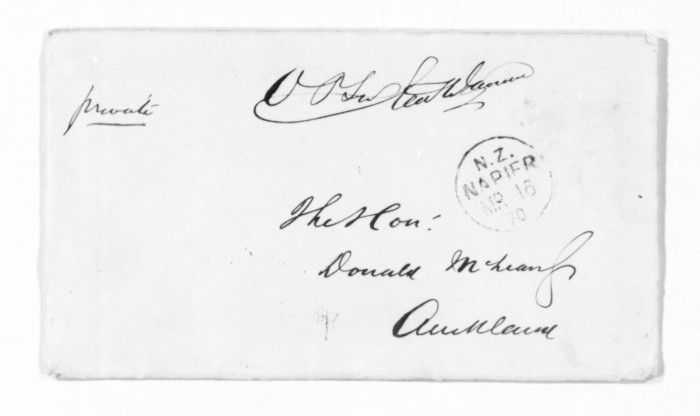 private
N.Z.
NAPIER
MR 16
70
The Hon:
Donald McLean
Auckland